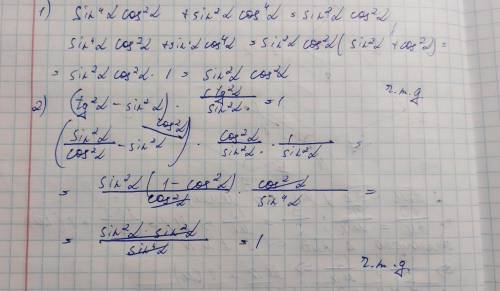 1) Sin⁴α cos²α + sin²α cos⁴α = sin²α cos²α
Sin⁴α cos²α + sin²α cos⁴α = sin²α cos²α (sin²α + cos²α) =
= sin²α cos²α · 1 = sin²α cos²α
ч.т.д
2) (tg²α – sin²α) · ctg²α / sin²α = 1
(sin²α / cos²α – sin²α ^cos²α) · cos²α / sin²α · 1 / sin²α =
= sin²α (1 – cos²α) / cos²α · cos²α / sin⁴α =
= sin²α · sin²α / sin⁴α = 1
ч.т.д